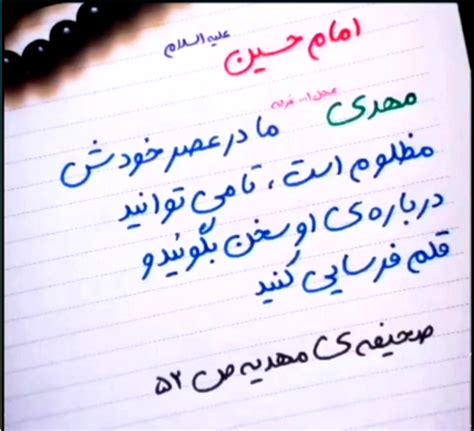 امام حسین علیه السلام
مهدی عجل الله فرجه ما در عصر خودش
مظلوم است، تا می توانید
درباره‌ی او سخن بگوئید و
قلم فرسایی کنید
صحیفه‌ی مهدیه ص ۵۲